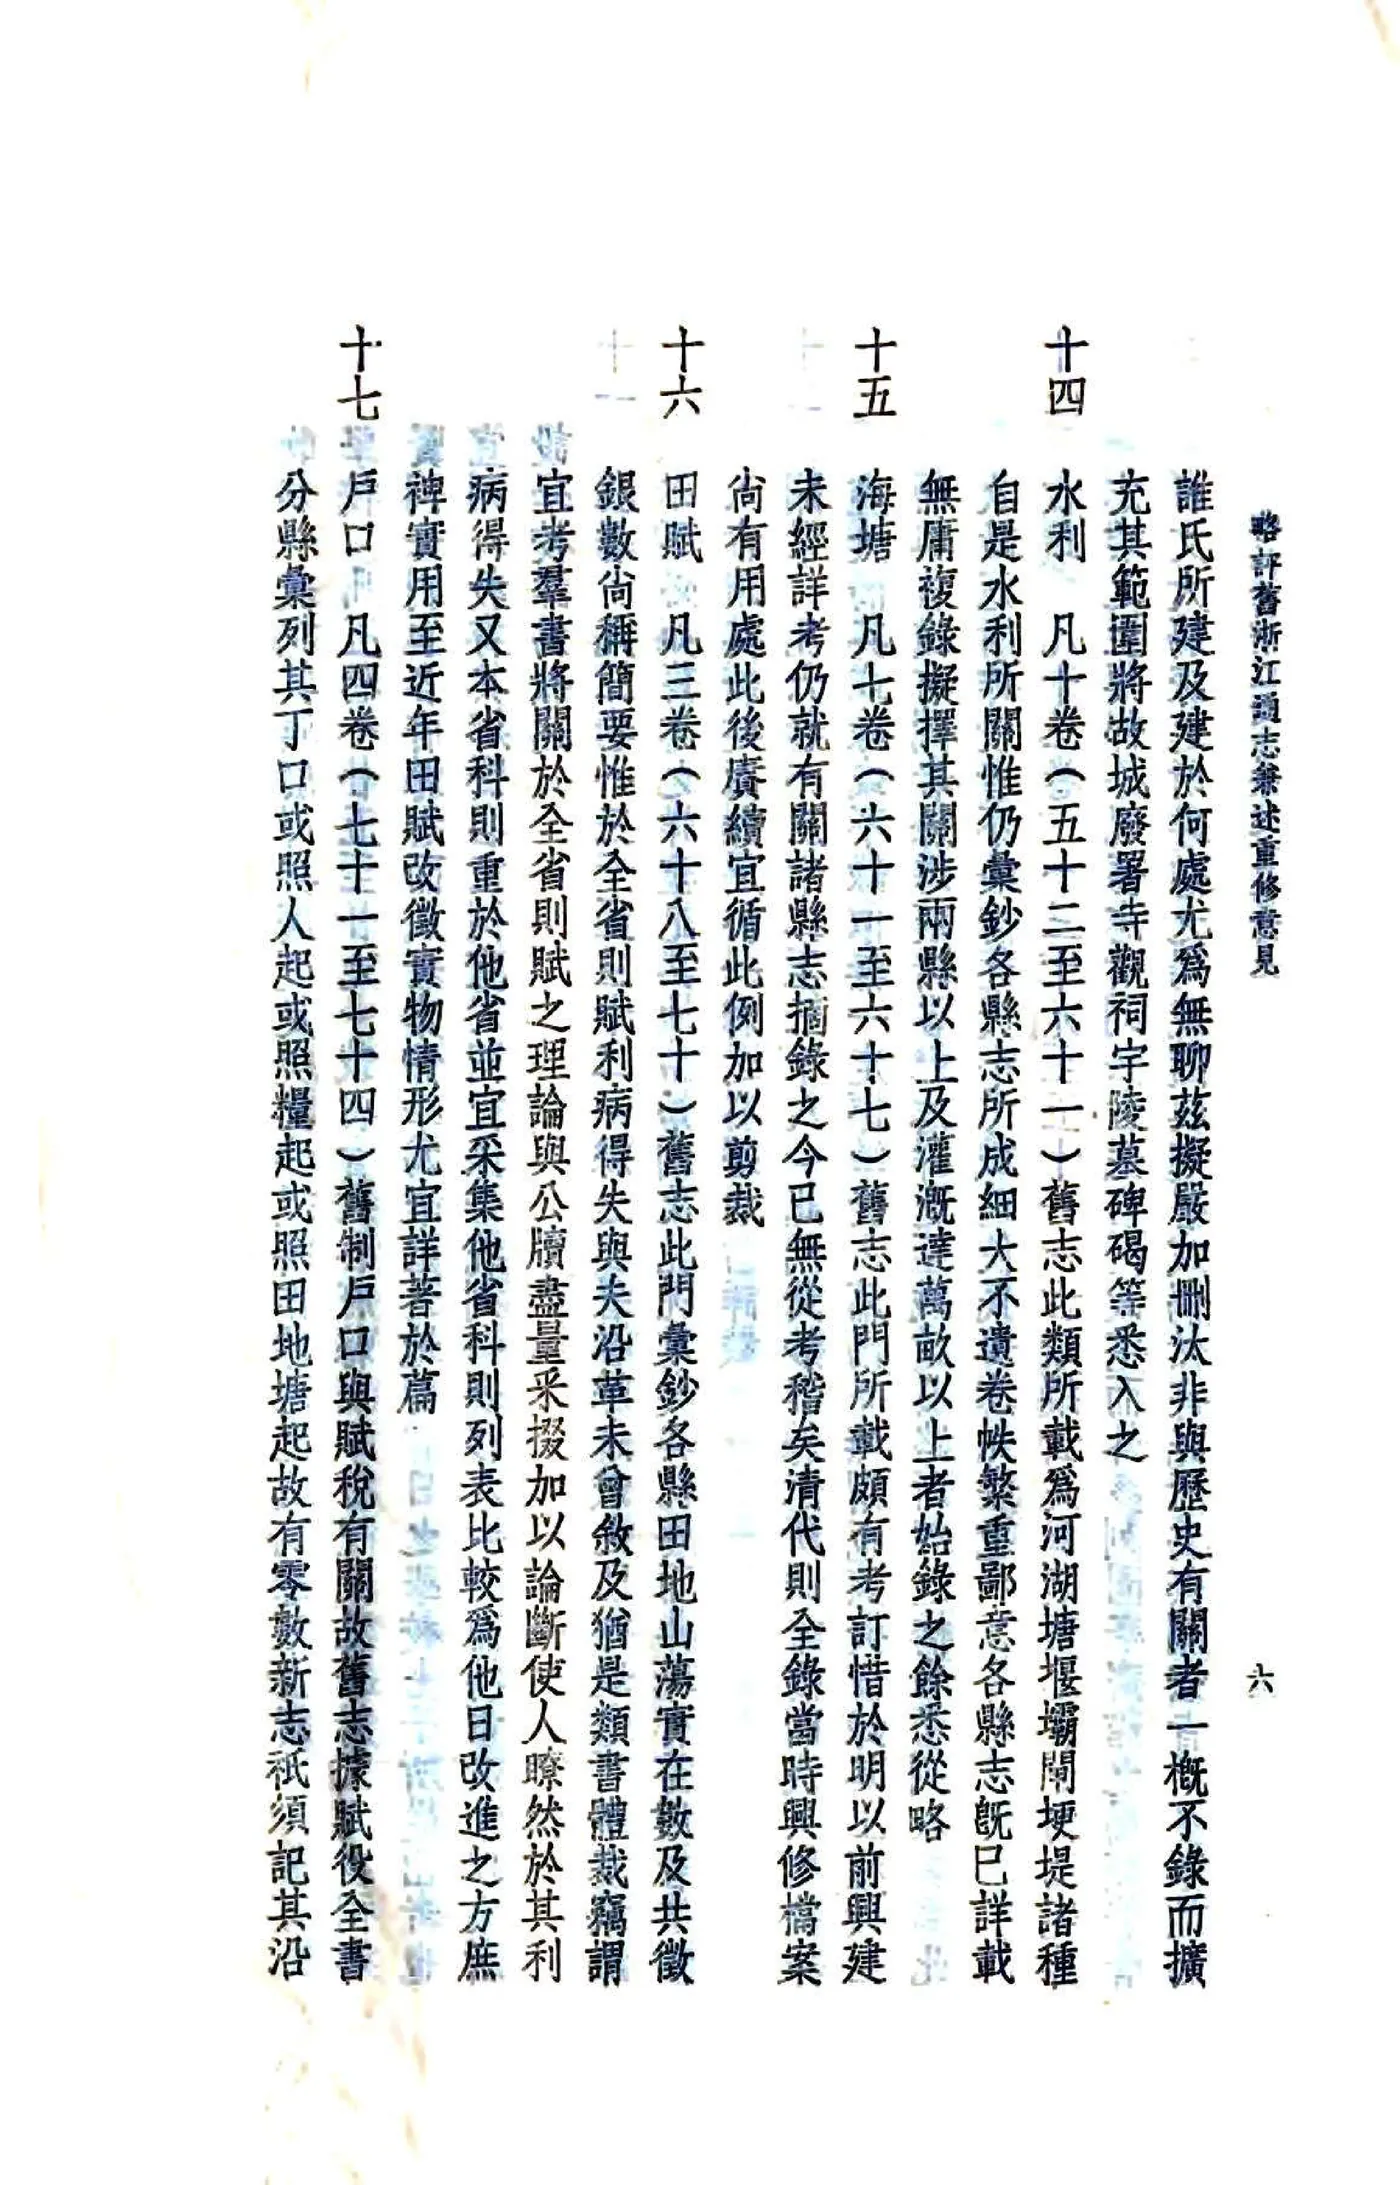 略評舊浙江通志兼述重修意見
六
誰氏所建及建於何處尤爲無聊茲擬嚴加刪汰非與歷史有關者一槪不錄而擴
充其範圍將故城廢署寺觀祠宇陵墓碑碣等悉入之
十四 水利 凡十卷(五十二至六十一)舊志此類所載爲河湖塘堰壩閘埂堤諸種
自是水利所關惟仍彙鈔各縣志所成細大不遺卷帙繁重鄙意各縣志旣已詳載
無庸複錄擬擇其關涉兩縣以上及灌漑達萬畝以上者始錄之餘悉從略
十五 海塘 凡七卷(六十一至六十七)舊志此門所載頗有考訂惜於明以前興建
未經詳考仍就有關諸縣志摘錄之今已無從考稽矣清代則全錄當時興修檔案
尚有用處此後賡續宜循此例加以剪裁
十六 田賦 凡三卷(六十八至七十)舊志此門彙鈔各縣田地山蕩實在數及共徵
銀數尙稱簡要惟於全省則賦利病得失與夫沿革未曾敘及猶是類書體裁竊謂
宜考羣書將關於全省則賦之理論與公牘盡量釆掇加以論斷使人瞭然於其利
病得失又本省科則重於他省並宜采集他省科則列表比較爲他日改進之方庶
裨實用至近年田賦改徵實物情形尤宜詳著於篇
十七 戶口 凡四卷(七十一至七十四)舊制戶口與賦稅有關故舊志據賦役全書
分縣彙列其丁口或照人起或照糧起或照田地塘起故有零數新志祇須記其沿